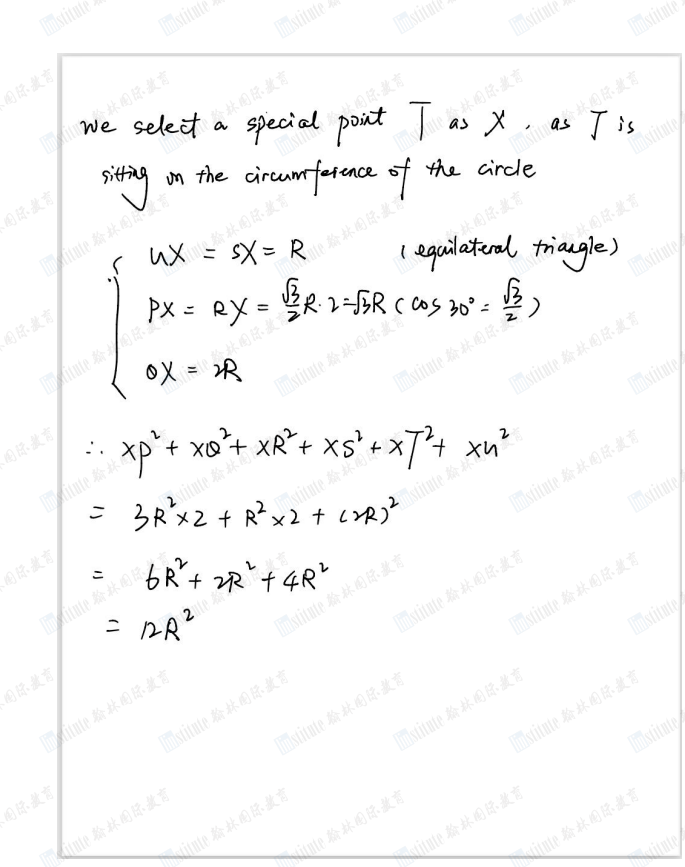 we select a special point T as X , as T is
sitting on the circumference of the circle
UX = SX = R (equilateral triangle)
PX = RX = √3/2 R·2=√3R (cos 30° = √3/2)
QX = 2R
∴ XP² + XQ² + XR² + XS² + XT² + XU²
= 3R²×2 + R²×2 + (2R)²
= 6R² + 2R² + 4R²
= 12R²